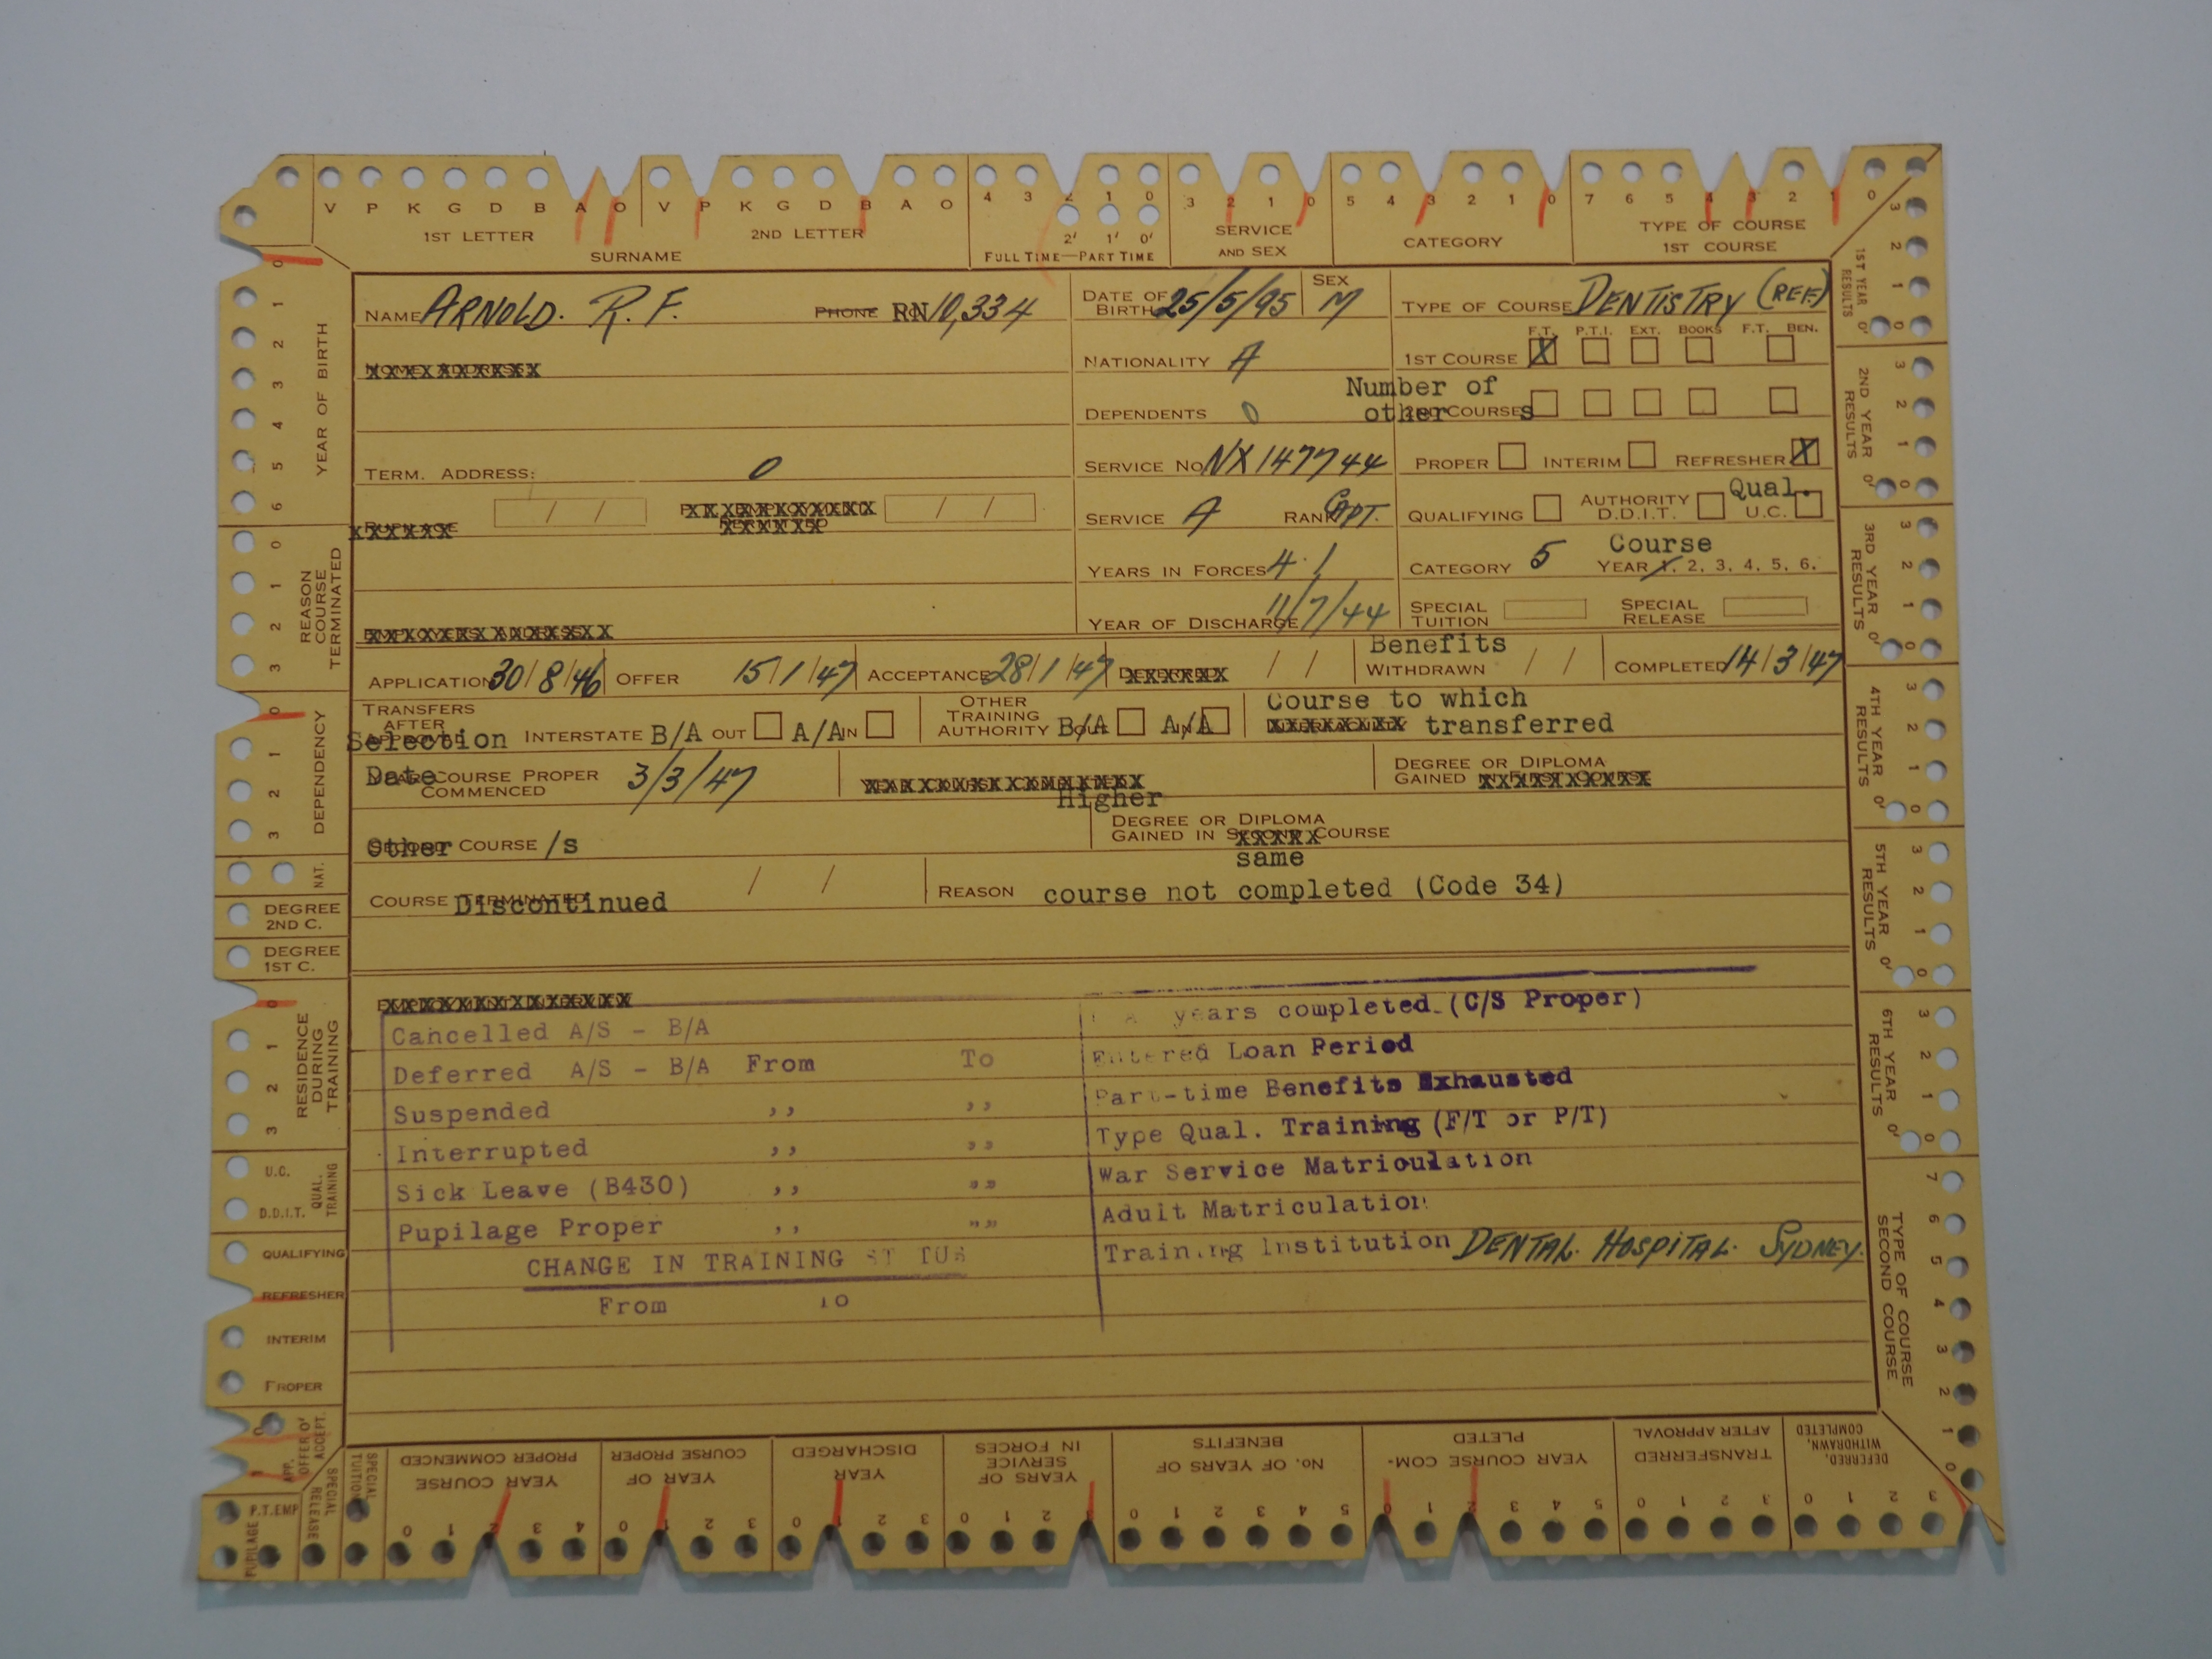 V P K G D B A O V P K G D B A O 4 3 2 1 0 3 2 1 0 5 4 3 2 1 0 7 6 5 4 3 2 1 0
2' 1' 0'
1ST LETTER 2ND LETTER
SURNAME
FULL TIME—PART TIME
SERVICE
AND SEX
CATEGORY
TYPE OF COURSE
1ST COURSE
NAME ARNOLD. R. F. PHONE RN 10,334
DATE OF
BIRTH 25/5/95
SEX
M
TYPE OF COURSE DENTISTRY (REF.)
F.T. P.T.I. EXT. BOOKS F.T. BEN.
NATIONALITY A
1ST COURSE X
DEPENDENTS 0
Number of
other COURSES
TERM. ADDRESS: 0
SERVICE NO. NX147744
PROPER INTERIM REFRESHER X
/ / / /
SERVICE A RANK CAPT.
QUALIFYING AUTHORITY
D.D.I.T.
Qual.
U.C.
YEARS IN FORCES 4.1
CATEGORY 5
Course
YEAR 1, 2, 3, 4, 5, 6.
YEAR OF DISCHARGE 11/7/44
SPECIAL
TUITION
SPECIAL
RELEASE
APPLICATION 30/8/46 OFFER 15/1/47 ACCEPTANCE 28/1/47 / /
Benefits
WITHDRAWN / /
COMPLETED 14/3/47
TRANSFERS
AFTER
Selection INTERSTATE B/A OUT A/A IN
OTHER
TRAINING
AUTHORITY B/A OUT A/A IN
Course to which
transferred
Date COURSE PROPER
COMMENCED 3/3/47
DEGREE OR DIPLOMA
GAINED
Other COURSE /s
Higher
DEGREE OR DIPLOMA
GAINED IN SECOND COURSE
same
COURSE Discontinued / /
REASON course not completed (Code 34)
Cancelled A/S - B/A
Deferred A/S - B/A From To
Suspended ,, ,,
Interrupted ,, ,,
Sick Leave (B430) ,, ,,
Pupilage Proper ,, ,,
CHANGE IN TRAINING
From To
years completed (C/S Proper)
Entered Loan Period
Part-time Benefits Exhausted
Type Qual. Training (F/T or P/T)
War Service Matriculation
Adult Matriculation
Training Institution DENTAL. HOSPITAL. SYDNEY.
0 1 2 3 4 5 6
YEAR OF BIRTH
0 1 2 3
REASON
COURSE
TERMINATED
0 1 2 3
DEPENDENCY
NAT.
DEGREE
2ND C.
DEGREE
1ST C.
0 1 2 3
RESIDENCE
DURING
TRAINING
U.C.
D.D.I.T.
QUAL.
TRAINING
QUALIFYING
REFRESHER
INTERIM
PROPER
APP.
OFFER O'
ACCEPT.
P.T.EMP
PUPILAGE
SPECIAL
RELEASE
SPECIAL
TUITION
3 2 1 0 0'
1ST YEAR
RESULTS
3 2 1 0 0'
2ND YEAR
RESULTS
3 2 1 0 0'
3RD YEAR
RESULTS
3 2 1 0 0'
4TH YEAR
RESULTS
3 2 1 0 0'
5TH YEAR
RESULTS
3 2 1 0 0'
6TH YEAR
RESULTS
7 6 5 4 3 2 1 0
TYPE OF COURSE
SECOND COURSE
YEAR COURSE
PROPER COMMENCED
0 1 2 3 4
YEAR OF
COURSE PROPER
0 1 2 3
YEAR
DISCHARGED
0 1 2 3
YEARS OF
SERVICE
IN FORCES
0 1 2 3
NO. OF YEARS OF
BENEFITS
0 1 2 3 4 5
YEAR COURSE COM-
PLETED
0 1 2 3 4 5
TRANSFERRED
AFTER APPROVAL
0 1 2 3
DEFERRED,
WITHDRAWN,
COMPLETED
0 1 2 3